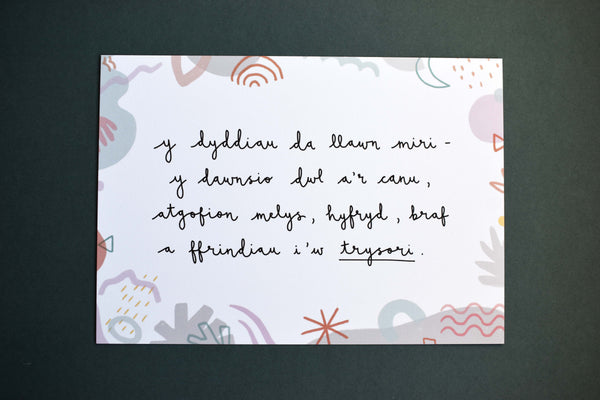 y dyddiau da llawn miri -
y dawnsio dwl a'r canu,
atgofion melys, hyfryd, braf
a ffrindiau i'w trysori.